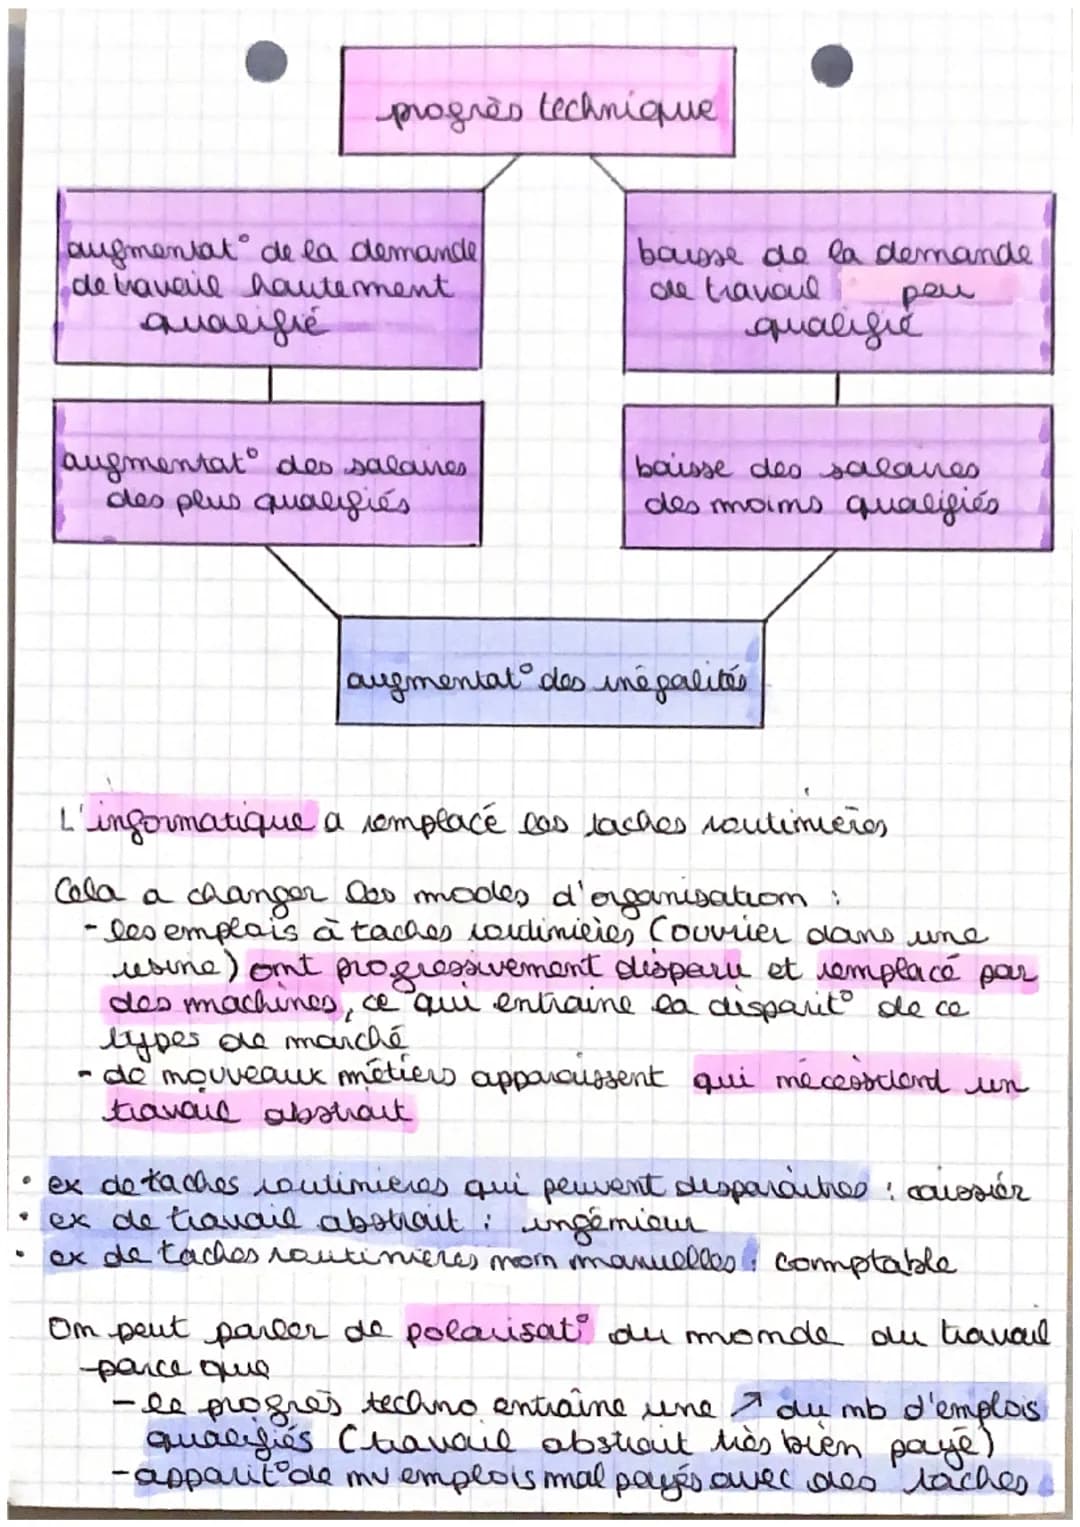 progrès technique
augmentat° de la demande
de travail hautement
qualifié
baisse de la demande
de travail peu
qualifié
augmentat° des salaires
des plus qualifiés
baisse des salaires
des moins qualifiés
augmentat° des inégalités
L'informatique a remplacé les taches routinières
Cela a changer les modes d'organisation :
- les emplois à taches routinières (ouvrier dans une
usine) ont progressivement disparu et remplacé par
des machines, ce qui entraine la disparit° de ce
types de marché
- de nouveaux métiers apparaissent qui nécessitend un
travail abstrait
• ex de taches routinieres qui peuvent disparaîtres : caissiér
• ex de travail abstrait : ingénieur
• ex de taches routinieres non manuelles : comptable
On peut parler de polarisat° du monde du travail
parce que
- le progrès techno entraîne une ↗ du nb d'emplois
qualifiés (travail abstrait très bien payé)
- apparit° de nv emplois mal payés avec des taches